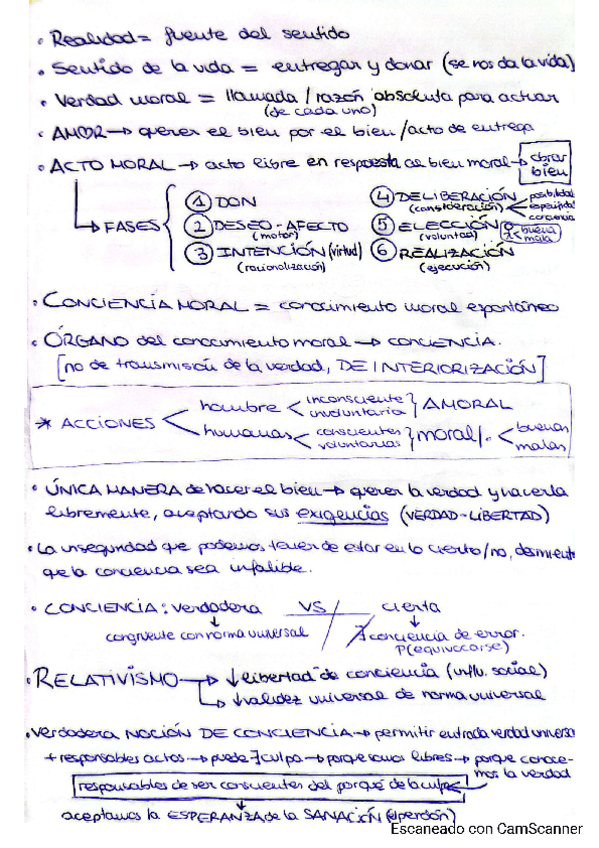 • Realidad = fuente del sentido
• Sentido de la vida = entregar y donar (se nos da la vida)
• Verdad moral = llamada / razón absoluta para actuar
(de cada uno)
• AMOR → querer el bien por el bien / acto de entrega
• ACTO MORAL → acto libre en respuesta al bien moral → obrar bien
→ FASES
① DON
② DESEO - AFECTO
(motor)
③ INTENCIÓN (virtud)
(racionalización)
④ DELIBERACIÓN
(consideración)
posibilidad
conciencia
⑤ ELECCIÓN
(voluntad)
buena
mala
⑥ REALIZACIÓN
(ejecución)
• CONCIENCIA MORAL = conocimiento moral espontáneo
• ÓRGANO del conocimiento moral → CONCIENCIA.
[no de transmisión de la verdad, DE INTERIORIZACIÓN]
* ACCIONES
hombre < inconsciente involuntaria } AMORAL
humanas < conscientes voluntarias } moral/. < buenas malas
• ÚNICA MANERA de hacer el bien → querer la verdad y hacerla
libremente, aceptando sus exigencias (VERDAD - LIBERTAD)
• La inseguridad que podemos tener de estar en lo cierto/no, desmiente
que la conciencia sea infalible.
• CONCIENCIA: verdadera VS cierta
congruente con norma universal
∃ conciencia de error.
P(equivocarse)
• RELATIVISMO → ↓ libertad de conciencia (influ. social)
↳ ↓ validez universal de norma universal
• Verdadera NOCIÓN DE CONCIENCIA → permitir entrada verdad universal
+ responsables actos → puede ∃ culpa → porque somos libres → porque conoce-
mos la verdad
responsables de ser conscientes del porqué de la culpa
aceptamos la ESPERANZA de la SANACIÓN (el perdón)
Escaneado con CamScanner